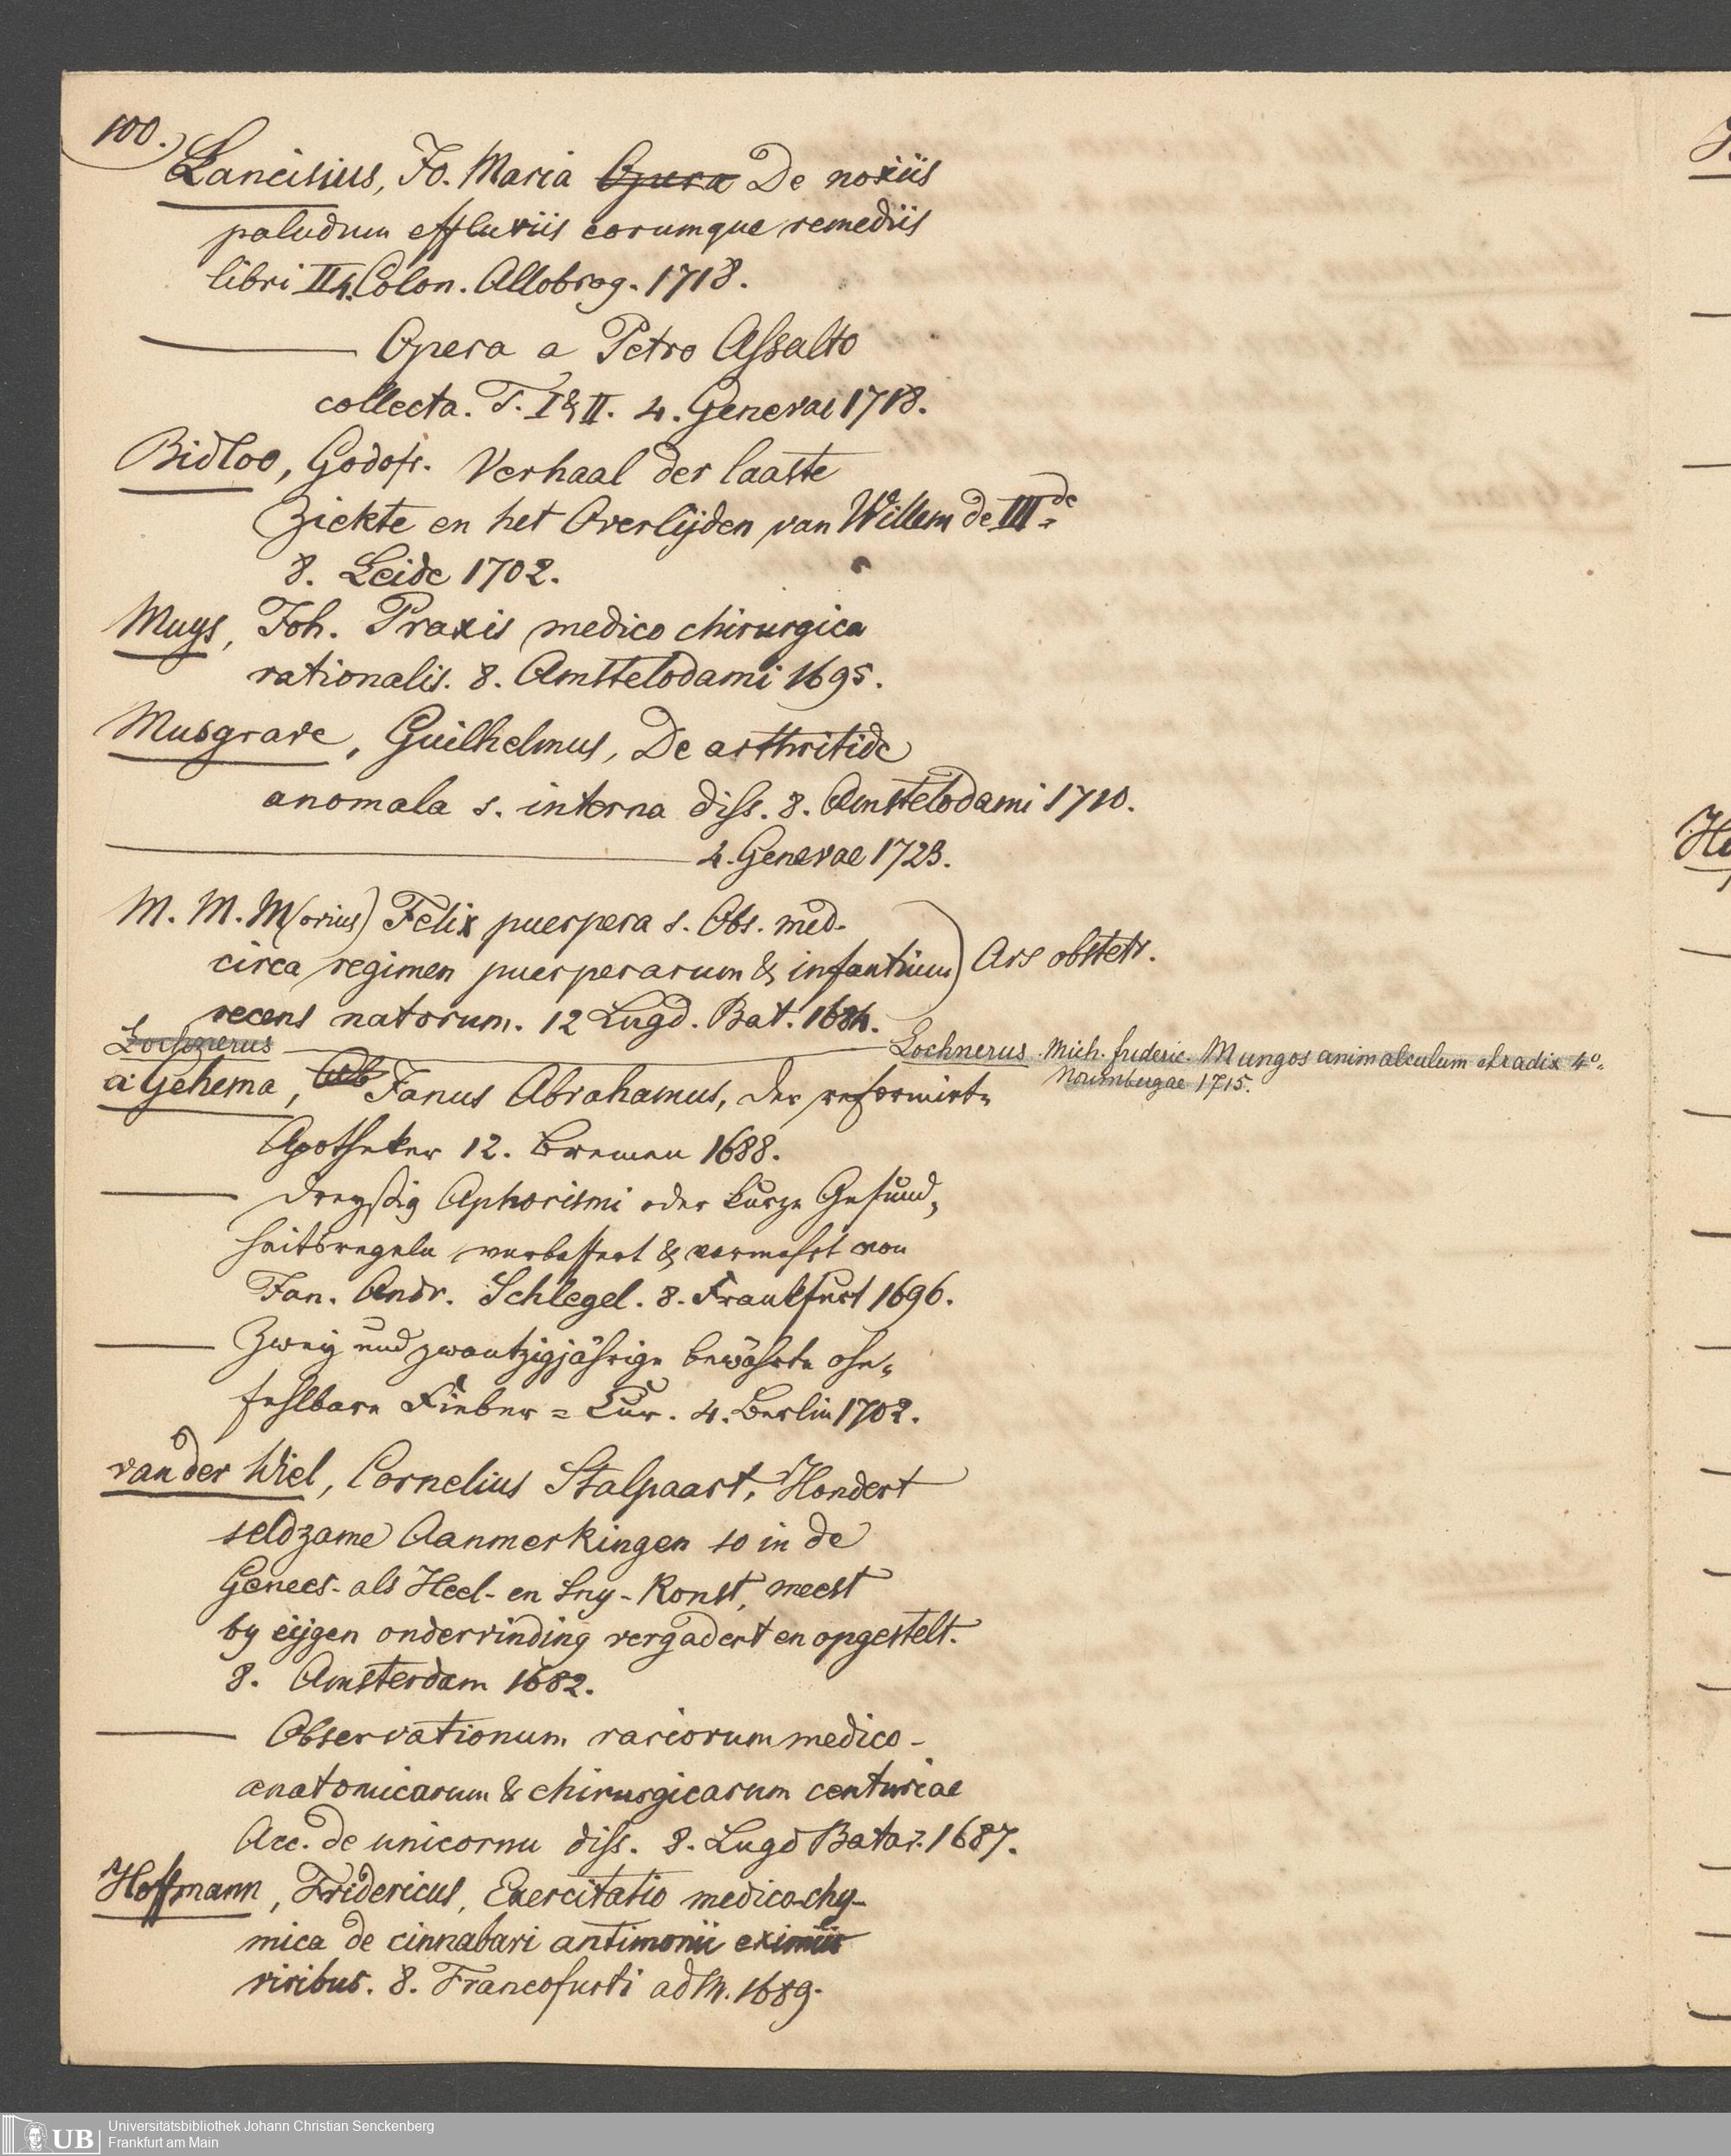 100.
Lancisius, Jo. Maria Opera De noxiis
paludum effluviis eorumque remediis
libri II 4. Colon. Allobrog. 1718.
Opera a Petro Assalto
collecta. T. I & II. 4. Genevae 1718.
Bidloo, Godofr. Verhaal der laaste
Ziekte en het Overlijden van Willem de III de
8. Leide 1702.
Muys, Joh. Praxis medico chirurgica
rationalis. 8. Amstelodami 1695.
Musgrave, Guilhelmus, De arthritide
anomala s. interna diss. 8. Amstelodami 1710.
4. Genevae 1723.
M. M. M(orius) Felix puerpera s. Obs. med.
circa regimen puerperarum & infantium
recens natorum. 12 Lugd. Bat. 1684.
Ars obstetr.
Lochnerus
Lochnerus. Mich. frideric. Mungos animalculum et radix 4°.
Norimbergae 1715.
a Gehema, Janus Abrahamus, der reformirte
Apotheker 12. Bremen 1688.
dreyßig Aphorismi oder kurze Gesund=
heitsregeln verbessert & vermehrt von
Jan. Andr. Schlegel. 8. Frankfurt 1696.
Zwey und zwantzigjährige bewährte ohn=
fehlbare Fieber=Cur. 4. Berlin 1702.
van der Wiel, Cornelius Stalpaart, Hondert
seldzame Aanmerkingen so in de
Genees- als Heel- en Sny-Konst, meest
by eijgen ondervinding vergadert en opgestelt.
8. Amsterdam 1682.
Observationum rariorum medico-
anatomicarum & chirurgicarum centuriae
Acc. de unicornu diss. 8. Lugd Batav. 1687.
Hoffmann, Fridericus, Exercitatio medico-chy-
mica de cinnabari antimonii eximiis
viribus. 8. Francofurti ad M. 1689.
UB
Universitätsbibliothek Johann Christian Senckenberg
Frankfurt am Main